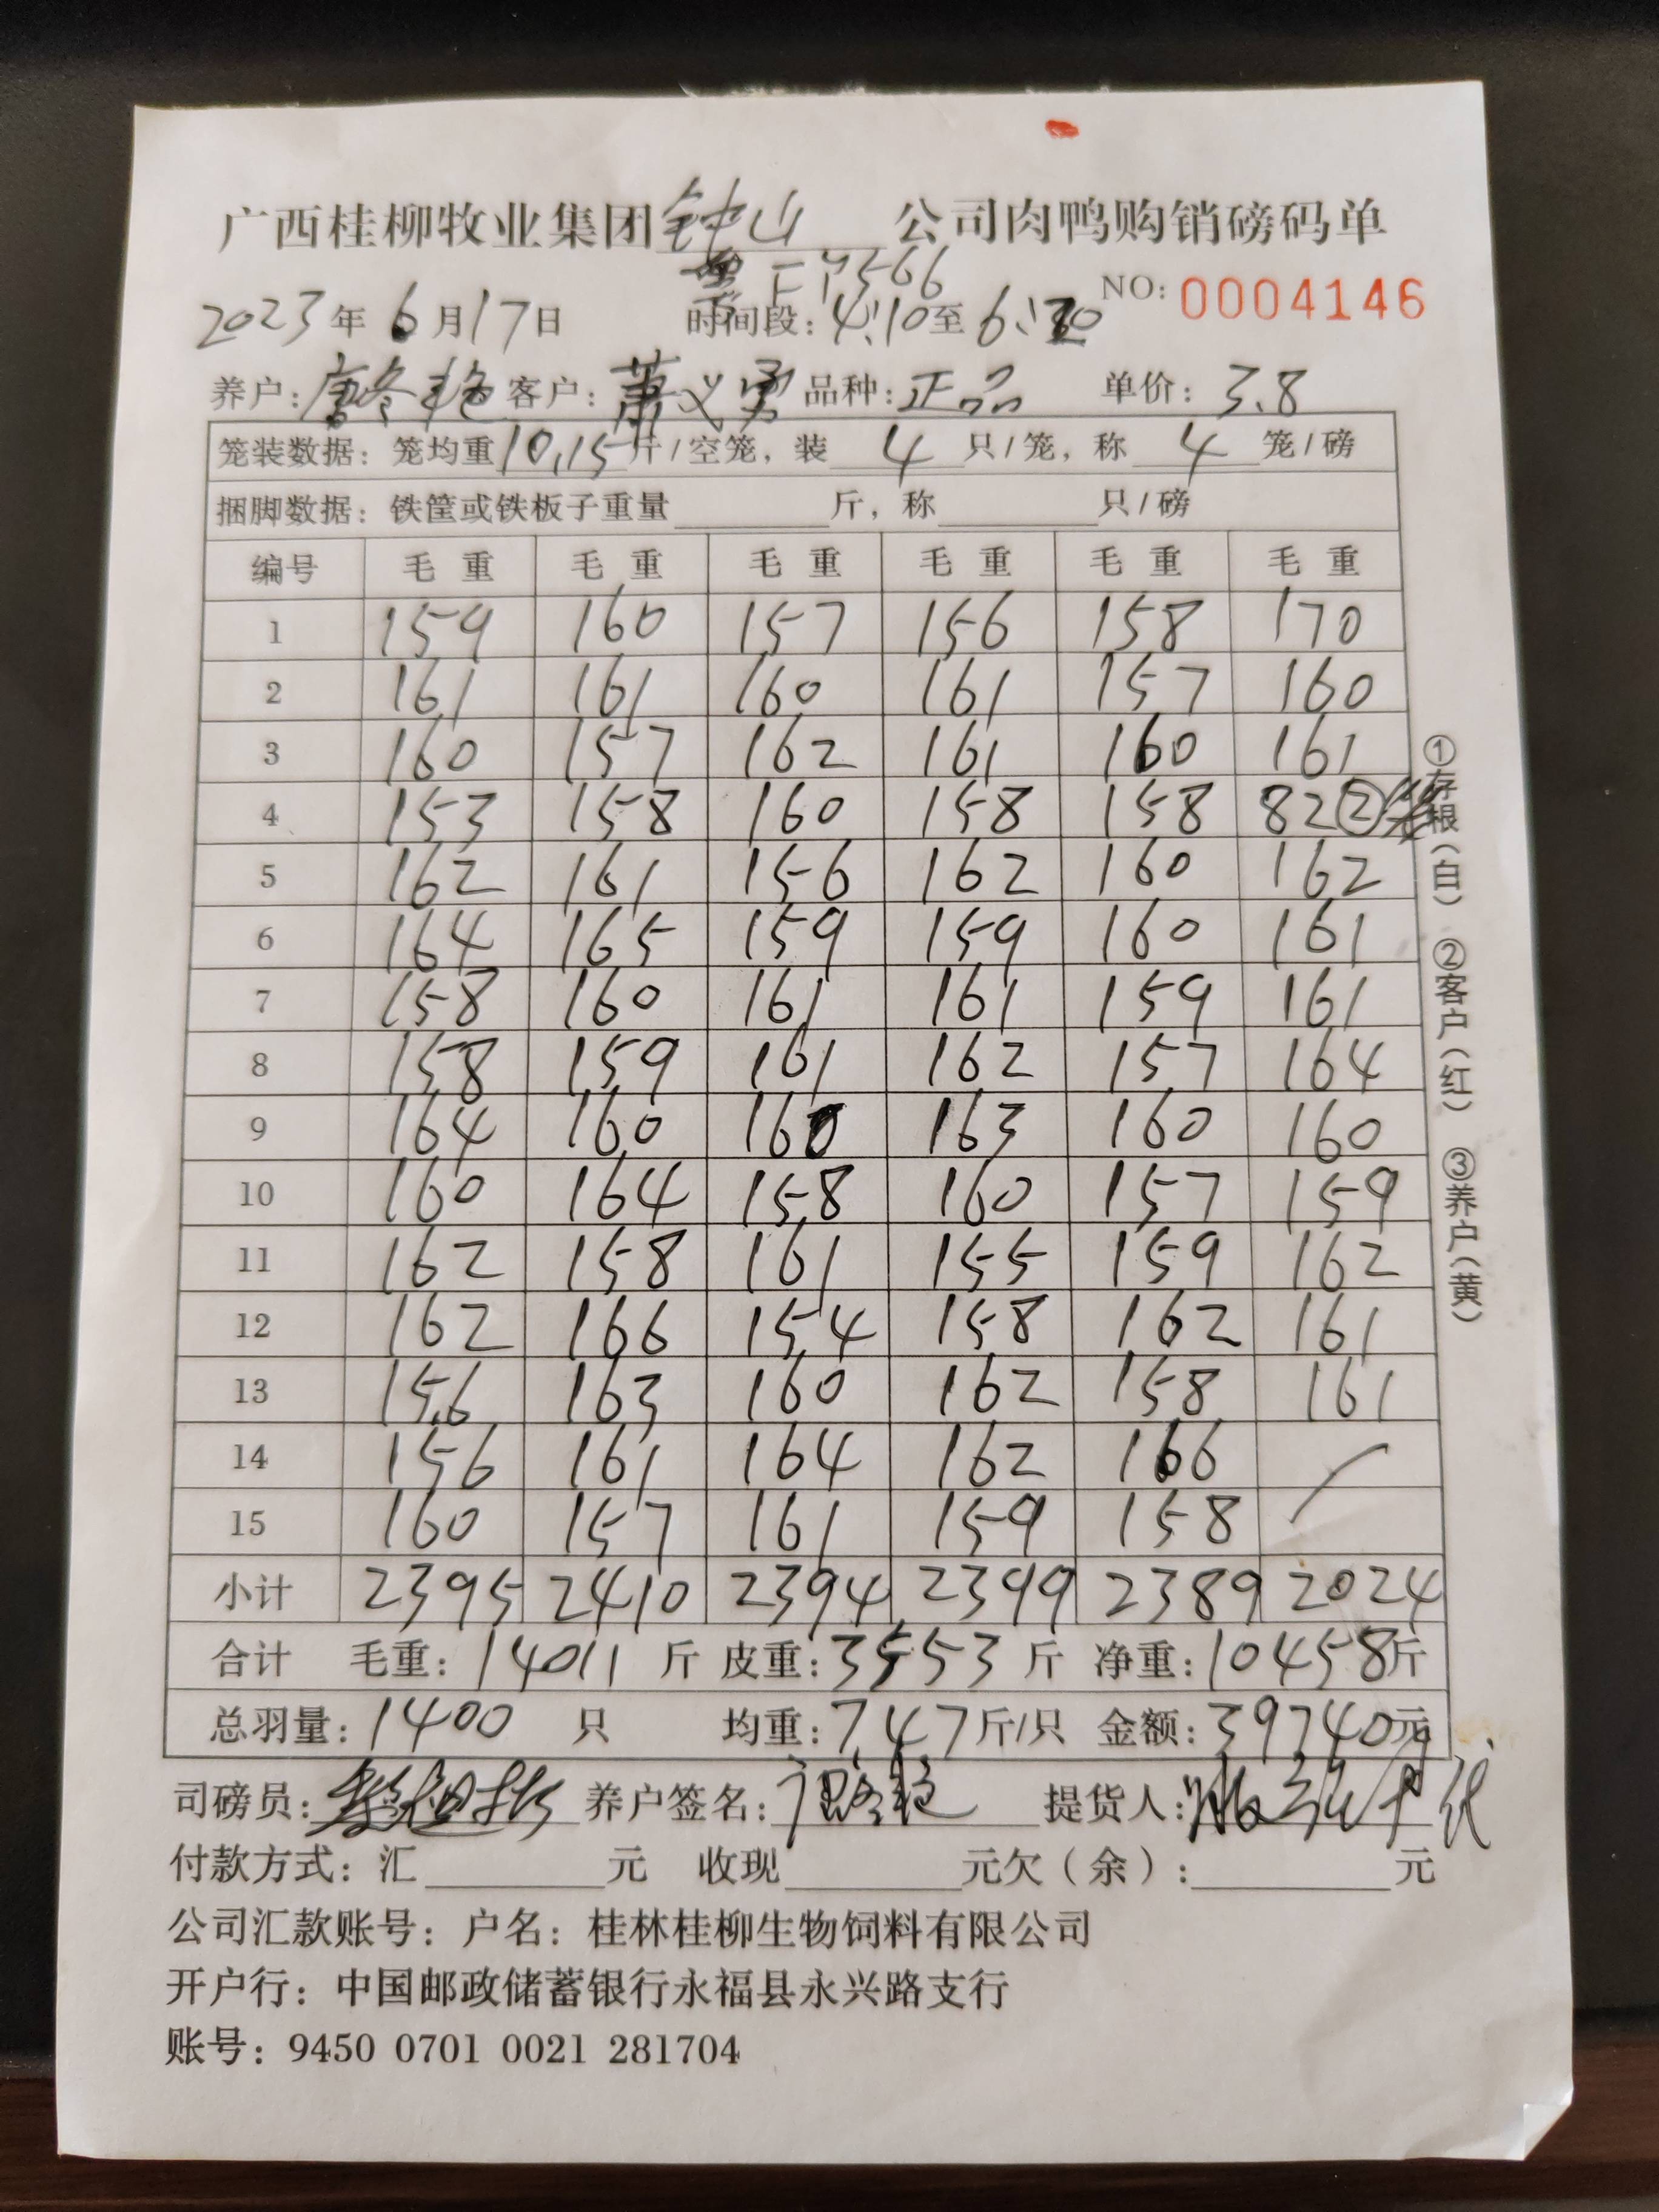 广西桂柳牧业集团钟山公司肉鸭购销磅码单
粤F17566
NO: 0004146
2023年6月17日 时间段: 4:10至6:20
养户: 唐冬艳 客户: 萧义勇 品种: 正品 单价: 3.8
笼装数据: 笼均重10.15斤/空笼, 装4只/笼, 称4笼/磅
捆脚数据: 铁筐或铁板子重量 斤, 称 只/磅
编号 毛重 毛重 毛重 毛重 毛重 毛重
1 159 160 157 156 158 170
2 161 161 160 161 157 160
3 160 157 162 161 160 161
4 153 158 160 158 158 82 ②
5 162 161 156 162 160 162
6 164 165 159 159 160 161
7 158 160 161 161 159 161
8 158 159 161 162 157 164
9 164 160 160 163 160 160
10 160 164 158 160 157 159
11 162 158 161 155 159 162
12 162 166 154 158 162 161
13 156 163 160 162 158 161
14 156 161 164 162 166
15 160 157 161 159 158
小计 2395 2410 2394 2399 2389 2024
合计 毛重: 14011斤 皮重: 3553斤 净重: 10458斤
总羽量: 1400只 均重: 7.47斤/只 金额: 39740元
司磅员: 养户签名: 提货人: 代
付款方式: 汇 元 收现 元欠(余): 元
公司汇款账号: 户名: 桂林桂柳生物饲料有限公司
开户行: 中国邮政储蓄银行永福县永兴路支行
账号: 9450 0701 0021 281704
①存根(白) ②客户(红) ③养户(黄)